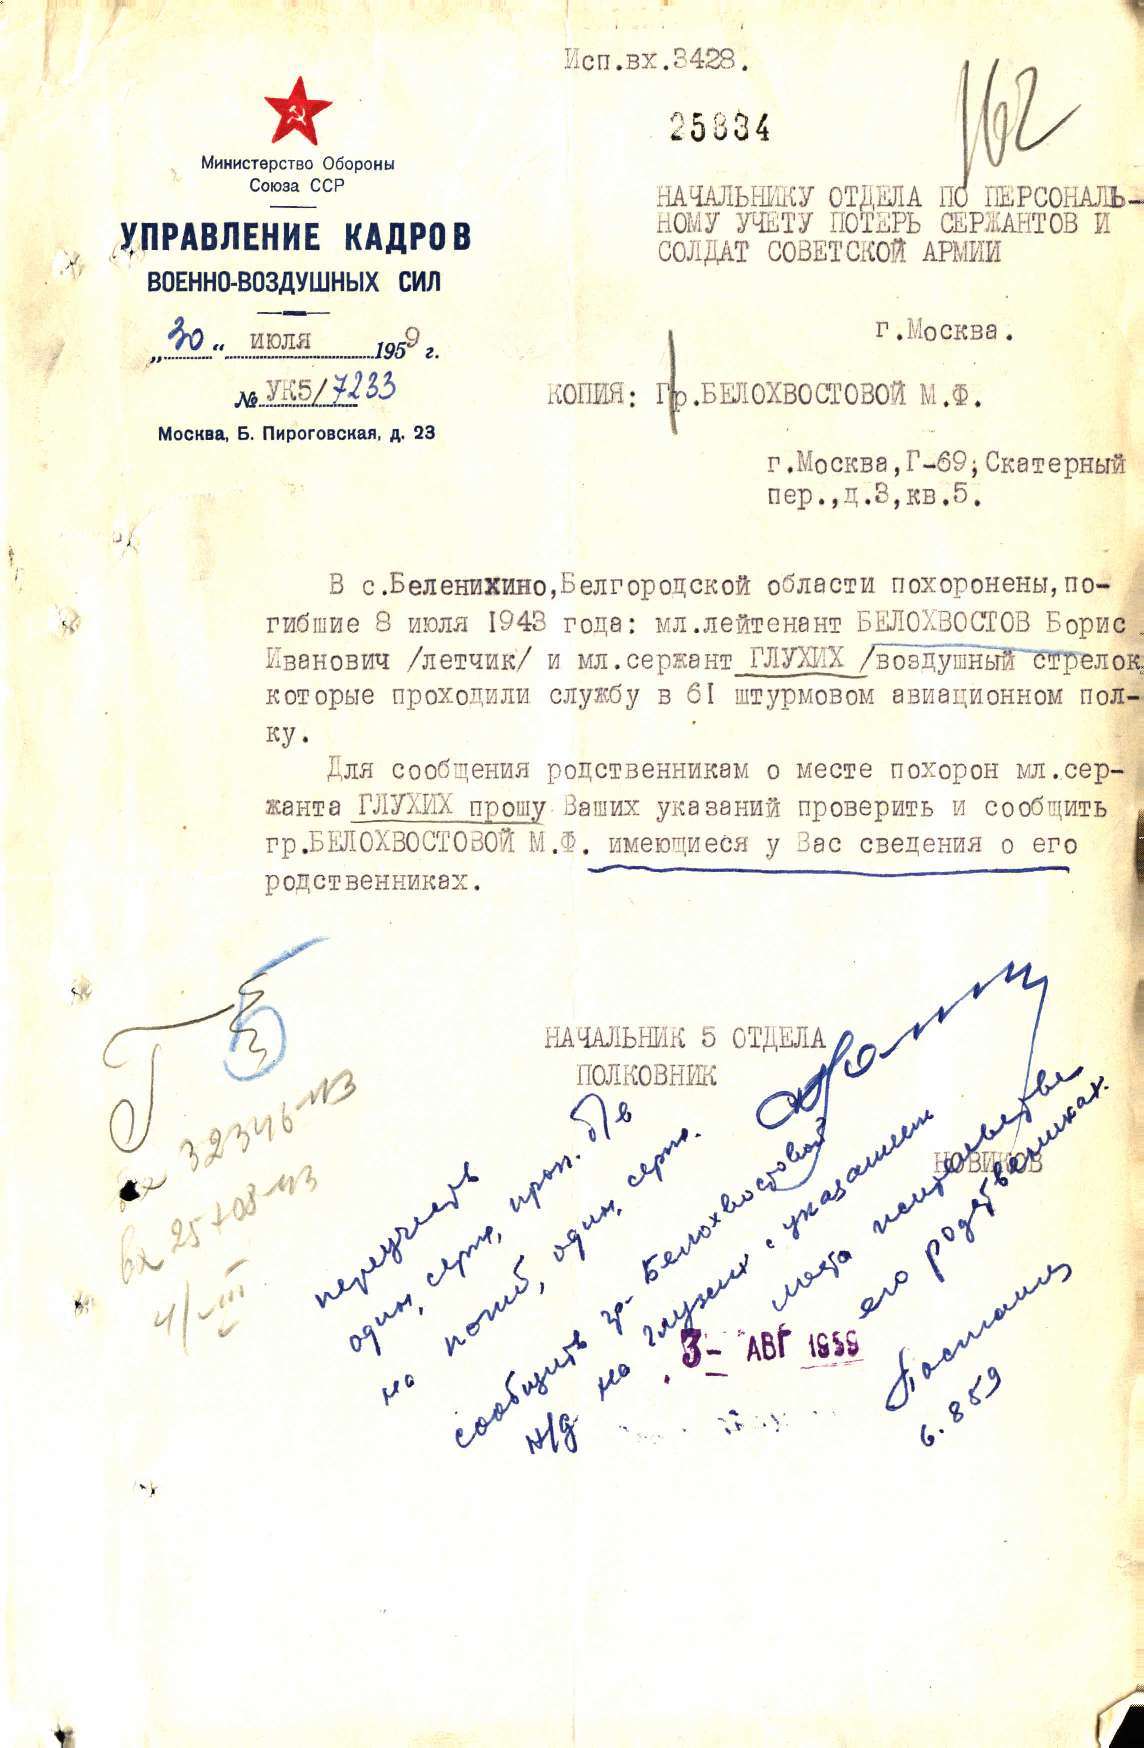 Исп.вх.3428.
25834
162
Министерство Обороны
Союза ССР
УПРАВЛЕНИЕ КАДРОВ
ВОЕННО-ВОЗДУШНЫХ СИЛ
„30“ июля 1959 г.
№ УК5/7233
Москва, Б. Пироговская, д. 23
НАЧАЛЬНИКУ ОТДЕЛА ПО ПЕРСОНАЛЬ-
НОМУ УЧЕТУ ПОТЕРЬ СЕРЖАНТОВ И
СОЛДАТ СОВЕТСКОЙ АРМИИ
г.Москва.
КОПИЯ: Гр.БЕЛОХВОСТОВОЙ М.Ф.
г.Москва,Г-69,Скатерный
пер.,д.3,кв.5.
В с.Беленихино,Белгородской области похоронены,по-
гибшие 8 июля 1943 года: мл.лейтенант БЕЛОХВОСТОВ Борис
Иванович /летчик/ и мл.сержант ГЛУХИХ /воздушный стрелок
которые проходили службу в 61 штурмовом авиационном пол-
ку.
Для сообщения родственникам о месте похорон мл.сер-
жанта ГЛУХИХ прошу Ваших указаний проверить и сообщить
гр.БЕЛОХВОСТОВОЙ М.Ф. имеющиеся у Вас сведения о его
родственниках.
НАЧАЛЬНИК 5 ОТДЕЛА
ПОЛКОВНИК
НОВИКОВ
Г
5
вх 32346-пз
вх 25708-пз
4/VIII
переучесть
один, серж, проп. б/в
на погиб, один, серж.
сообщить гр. Белохвостовой
н/д на Глухих с указанием
места жительства
его родственниках.
3- АВГ 1959
6.859